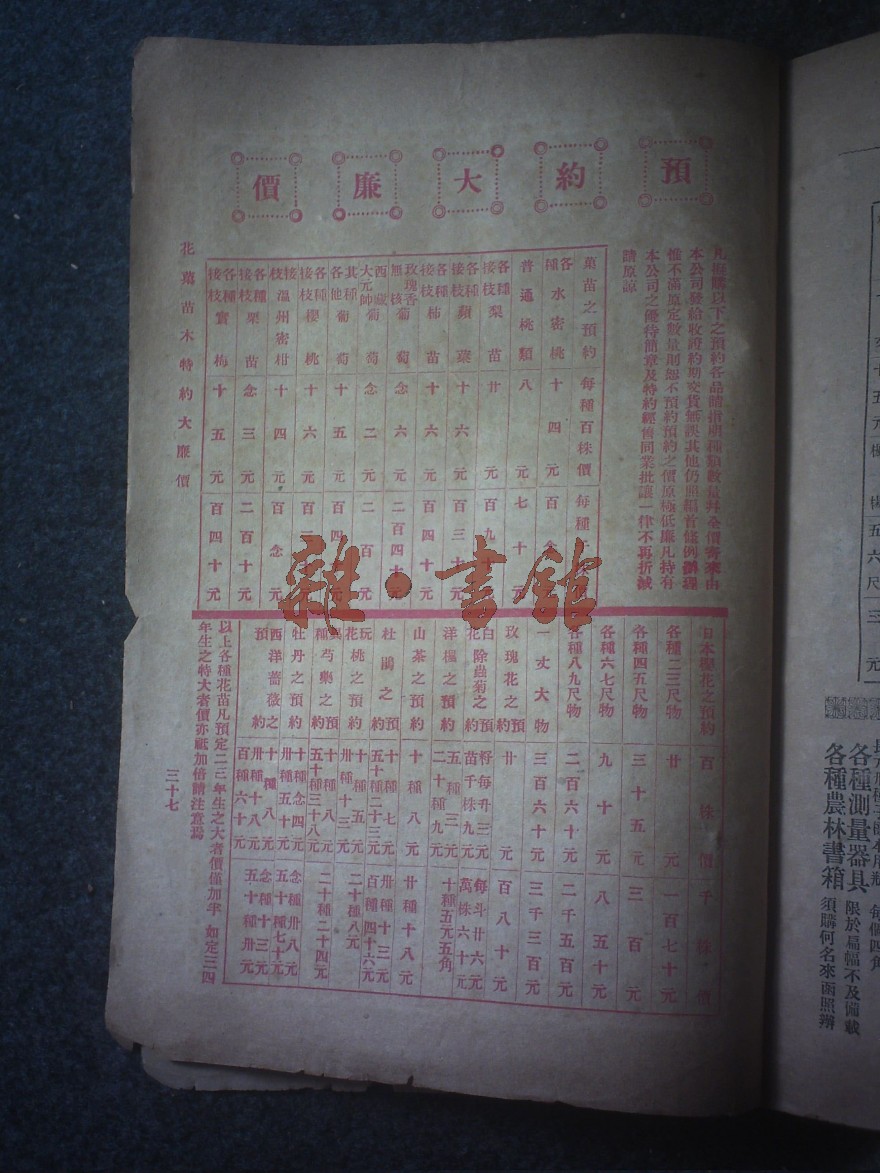 預約大廉價
凡惠購以下之預約各品請指明種類數量幷全價寄來由
本公司發給收證約期交貨無誤其他仍照編首條例辦理
惟不滿原定數量則恕不預約預約之價原極低廉凡持有
本公司之優待簡章及特約經售同業批讓一律不再折減
請原諒
菓苗之預約 每種百株價 每種
各種水密桃 十四元 百念
普通桃類 八元 七十元
各種接枝梨苗 廿元 百九十
各種接枝蘋菓 十六元 百三十
各種接枝柿苗 十六元 百四十元
玫瑰香無核葡萄 念六元 二百四十
西藏大元帥葡萄 念二元 二百
其他各種葡萄 十五元 百四
各種接枝櫻桃 十六元 百
接枝溫州密柑 十四元 百念元
各種接枝栗苗 念三元 二百十元
各種接枝實梅 十五元 百四十元
花菓苗木特約大廉價
日本櫻花之預約 百株價 千株價
各種二三尺物 廿元 一百七十元
各種四五尺物 三十五元 三百元
各種六七尺物 九十元 八五十元
各種八九尺物 二百六十元 二千五百元
一丈大物 三百六十元 三千三百元
玫瑰花之預約 廿元 百八十元
白花除蟲菊之預約 籽每升三元 苗千株九元 每斗廿六元 萬株六十元
洋榲之預約 五種三元 二十種九元 十種五元五角
山茶之預約 十種八元 廿種十八元
杜鵑之預約 十種七元 五十種二十三元 卅種十八元 百種四十六元
玩花桃之預約 十種五元 卅種十三元 二十種八元
異種芍藥之預約 十種八元 五十種三十八元 二十種二十四元
牡丹之預約 十種念四元 卅種五十元 念種卅八元 五十種七十元
西洋薔薇之預約 十種八元 卅種十八元 百種六十元 念種十三元 五十種卅元
以上各種花苗凡預定二三年生之大者價僅加半 如定三四
年生之特大者價亦祗加倍請注意焉
三十七
雜·書館
五六尺三元
各種測量器具 限於扁幅不及備載
各種農林書箱 須購何名來函照辦